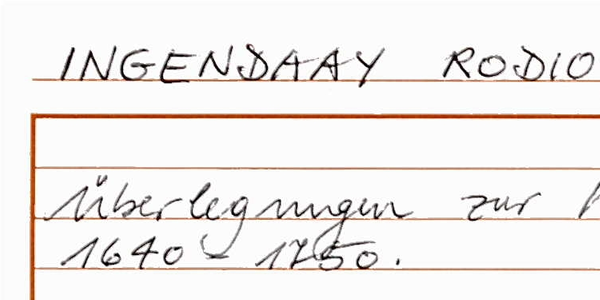 INGENDAAY RODIO
Überlegungen zur
1640 - 1750.